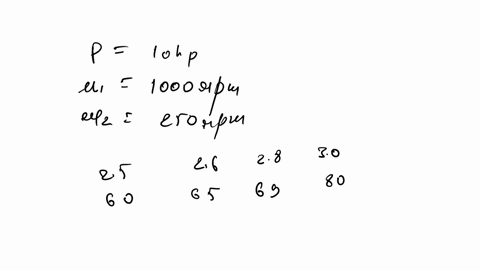 P = 10hp
n1 = 1000 rpm
n2 = 250 rpm
25 2.6 2.8 3.0
60 65 69 80